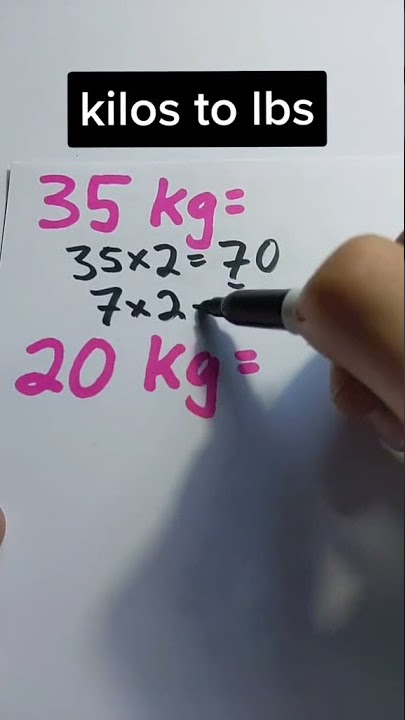 kilos to lbs
35 kg=
35×2=70
7×2-
20 kg=